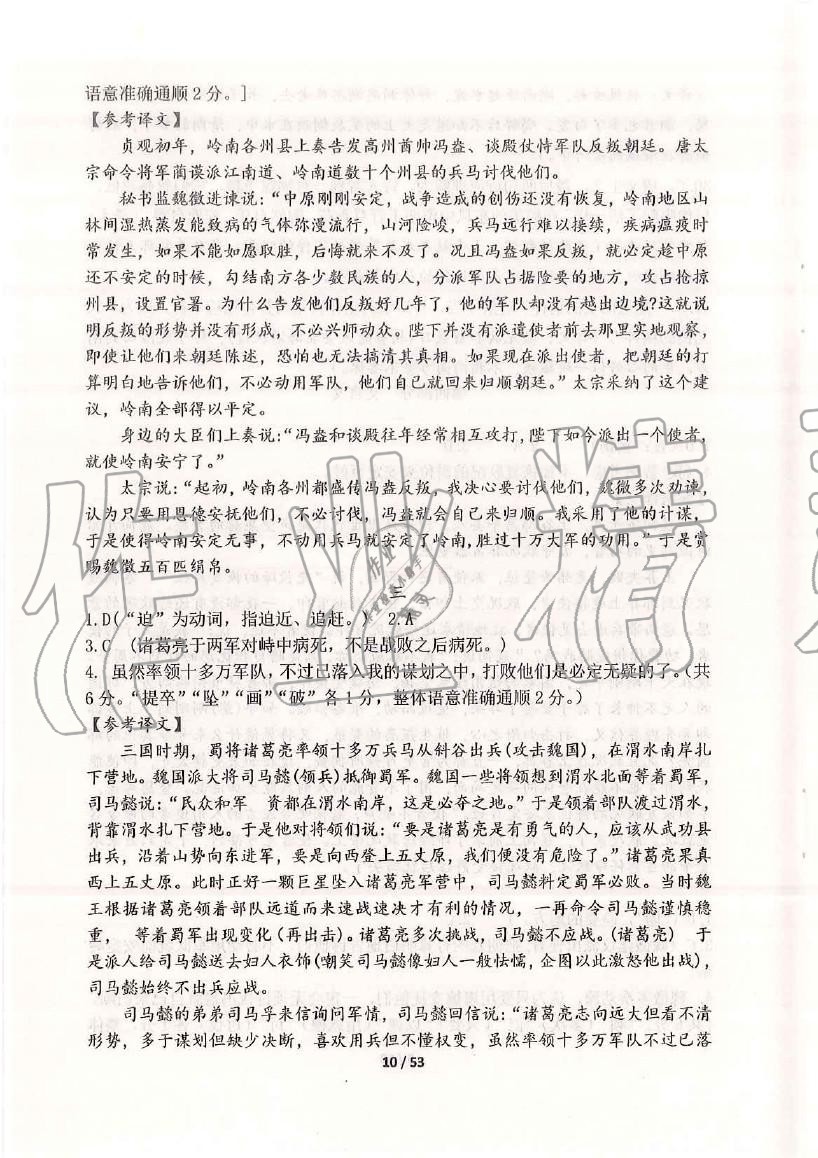 语意准确通顺2分。]
【参考译文】
贞观初年，岭南各州县上奏告发高州酋帅冯盎、谈殿仗恃军队反叛朝廷。唐太
宗命令将军蔺谟派江南道、岭南道数十个州县的兵马讨伐他们。
秘书监魏徵进谏说：“中原刚刚安定，战争造成的创伤还没有恢复，岭南地区山
林间湿热蒸发能致病的气体弥漫流行，山河险峻，兵马远行难以接续，疾病瘟疫时
常发生，如果不能如愿取胜，后悔就来不及了。况且冯盎如果反叛，就必定趁中原
还不安定的时候，勾结南方各少数民族的人，分派军队占据险要的地方，攻占抢掠
州县，设置官署。为什么告发他们反叛好几年了，他的军队却没有越出边境?这就说
明反叛的形势并没有形成，不必兴师动众。陛下并没有派遣使者前去那里实地观察，
即使让他们来朝廷陈述，恐怕也无法搞清其真相。如果现在派出使者，把朝廷的打
算明白地告诉他们，不必动用军队，他们自己就已经回来归顺朝廷。”太宗采纳了这个建
议，岭南全部得以平定。
身边的大臣们上奏说：“冯盎和谈殿往年经常相互攻打,陛下如今派出一个使者，
就使岭南安宁了。”
太宗说：“起初，岭南各州都盛传冯盎反叛，我决心要讨伐他们，魏微多次劝谏，
认为只要用恩德安抚他们，不必讨伐，冯盎就会自己来归顺。我采用了他的计谋，
于是使得岭南安定无事，不动用兵马就安定了岭南,胜过十万大军的功用。”于是赏
赐魏徵五百匹绢帛。
三
1.D(“追”为动词，指迫近、追赶。) 2.A
3.C (诸葛亮于两军对峙中病死，不是战败之后病死。)
4. 虽然率领十多万军队，不过已落入我的谋划之中，打败他们是必定无疑的了。(共
6分。“提卒”“坠”“画”“破”各1分，整体语意准确通顺2分。)
【参考译文】
三国时期，蜀将诸葛亮率领十多万兵马从斜谷出兵(攻击魏国)，在渭水南岸扎
下营地。魏国派大将司马懿(领兵)抵御蜀军。魏国一些将领想到渭水北面等着蜀军，
司马懿说：“民众和军 资都在渭水南岸，这是必夺之地。”于是领着部队渡过渭水，
背靠渭水扎下营地。于是他对将领们说：“要是诸葛亮是有勇气的人，应该从武功县
出兵，沿着山势向东进军，要是向西登上五丈原，我们便没有危险了。”诸葛亮果真
西上五丈原。此时正好一颗巨星坠入诸葛亮军营中，司马懿料定蜀军必败。当时魏
王根据诸葛亮领着部队远道而来速战速决才有利的情况，一再命令司马懿谨慎稳
重， 等着蜀军出现变化(再出击)。诸葛亮多次挑战，司马懿不应战。(诸葛亮) 于
是派人给司马懿送去妇人衣饰(嘲笑司马懿像妇人一般怯懦，企图以此激怒他出战)，
司马懿始终不出兵应战。
司马懿的弟弟司马孚来信询问军情，司马懿回信说：“诸葛亮志向远大但看不清
形势，多于谋划但缺少决断，喜欢用兵但不懂权变，虽然率领十多万军队不过已落
10 / 53